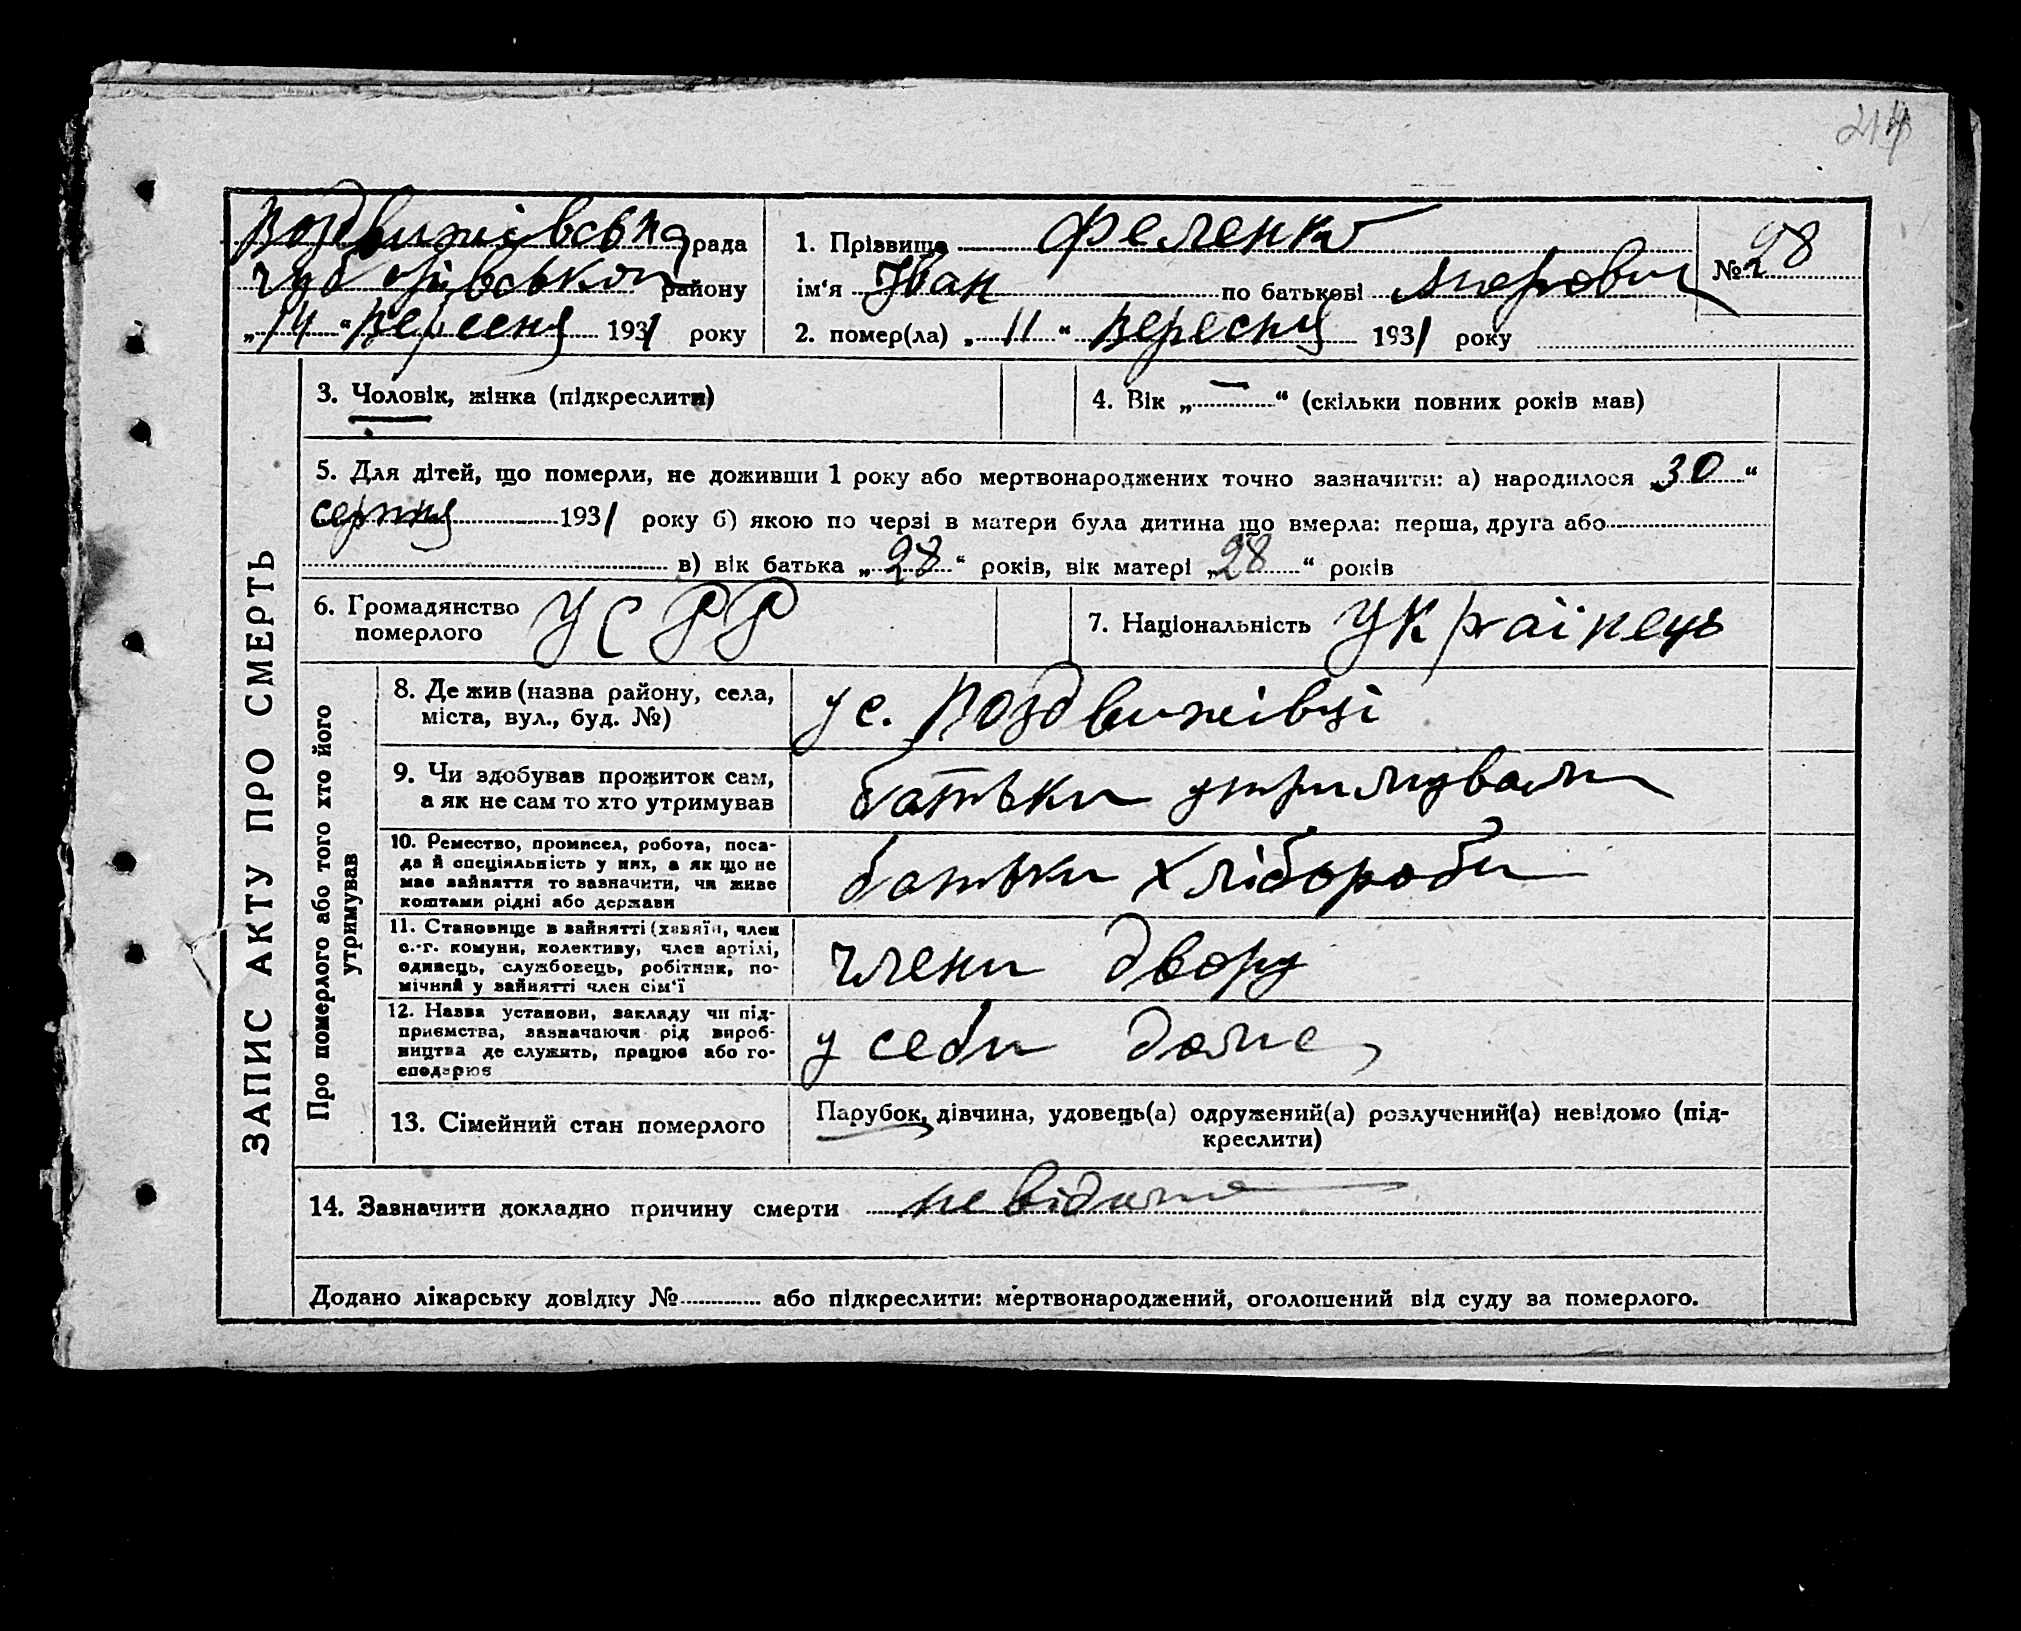 214
Воздвижівська рада
району
„14“ Вересня 1931 року
1. Прізвище Феленко
ім'я Іван по батькові
№ 98
2. помер(ла) „11“ Вересня 1931 року
ЗАПИС АКТУ ПРО СМЕРТЬ
3. Чоловік, жінка (підкреслити)
4. Вік „—“ (скільки повних років мав)
5. Для дітей, що померли, не доживши 1 року або мертвонароджених точно зазначити: а) народилося „30“
серпня 1931 року б) якою по черзі в матери була дитина що вмерла: перша, друга або
в) вік батька „28“ років, вік матері „28“ років
6. Громадянство
померлого
УСРР
7. Національність Українець
Про померлого або того хто його
утримував
8. Де жив (назва району, села,
міста, вул., буд. №)
у с. Воздвижівці
9. Чи здобував прожиток сам,
а як не сам то хто утримував
батьки утримували
10. Ремество, промисел, робота, поса-
да й спеціяльність у них, а як що не
має зайняття то зазначити, чи живе
коштами рідні або держави
батьки хлібороби
11. Становище в зайнятті (хазяїн, член
с.-г. комуни, колективу, член артілі,
одинець, службовець, робітник, по-
мічний у зайнятті член сім'ї
члени двору
12. Назва установи, закладу чи під-
приємства, зазначаючи рід вироб-
ництва де служить, працює або го-
сподарює
у себи дома
13. Сімейний стан померлого
Парубок, дівчина, удовець(а) одружений(а) розлучений(а) невідомо (під-
креслити)
14. Зазначити докладно причину смерти невідома
Додано лікарську довідку № або підкреслити: мертвонароджений, оголошений від суду за померлого.